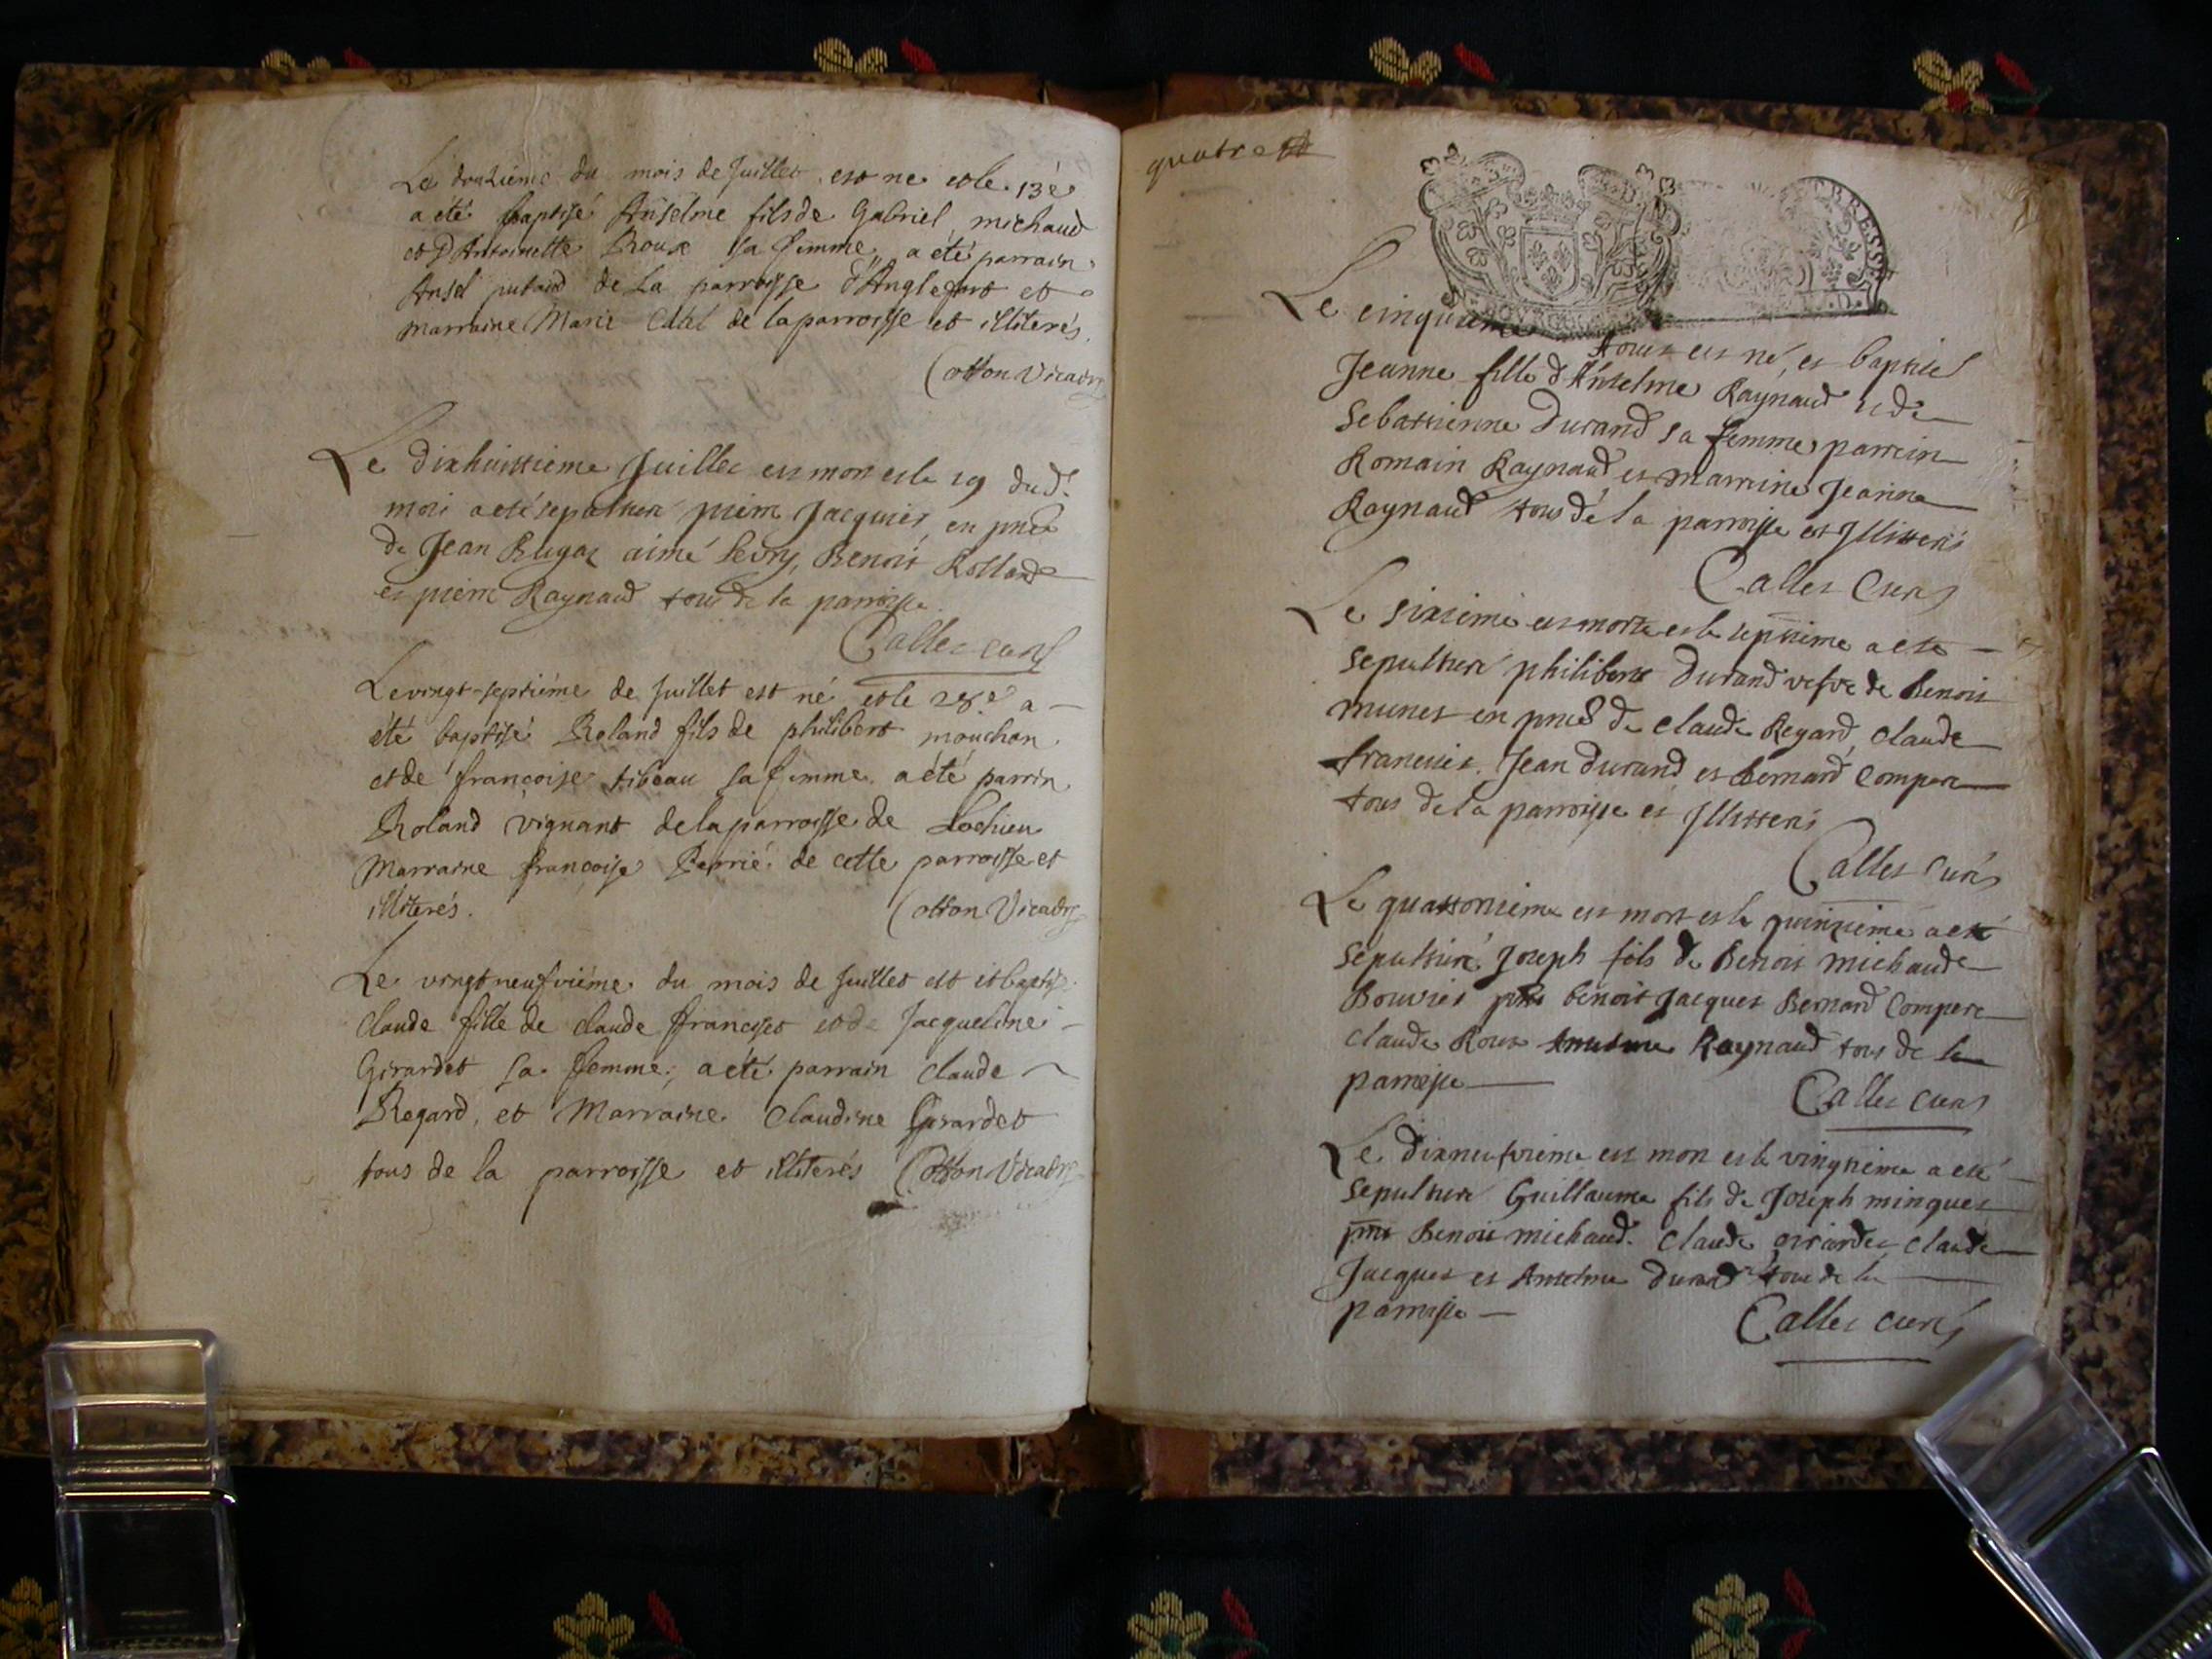 Le douzieme du mois de Juillet est né et le 13e
a eté baptisé Anselme fils de Gabriel michaud
et D'Antoinette Roux sa femme, a été parrain
Ansel putaud de la parroisse d'Anglefort et
marraine Marie de la parroisse et illiterés.
Cotton Vicaire
Le dixhuittieme Juillet est mort et le 19 dud.
mois a eté sepulturé pierre Jacques, en pnce
de Jean Bugoz aimé Benoit Rolland
et pierre Raynaud tous de la parroisse.
Callet curé
Le vingt-septiéme de Juillet est né et le 28e a
été baptisé Roland fils de philibert mouchon
et de françoise tibeau sa femme. a été parrin
Roland vignant de la parroisse de Lochieu
Marraine françoise Perrié de cette parroisse et
illiterés.
Cotton Vicaire
Le vingt neufviéme du mois de Juillet est et baptisé
Claude fille de claude françoes et de Jacqueline
Girardet sa femme, a été parrain Claude
Regard, et Marraine Claudine Girardet
tous de la parroisse et illiterés Cotton Vicaire
quatre
BRESSE
Le cinquieme
Aoust est né, et baptisé
Jeanne fille d'Anselme Raynaud et de
Sebastienne Durand sa femme parrein
Romain Raynaud et marreine Jeanne
Raynaud tous de la parroisse et Illitterés
Callet Curé
Le sixieme est morte et le septieme a esté
sepulturé philiberte Durand vefve de Benoit
munet en pnce de Claude Regard, Claude
francois. Jean Durand et Bernard Compere
tous de la parroisse et Illitterés
Callet Curé
Le quattorsieme est mort et le quinzieme a esté
sépulturé Joseph fils de Benoit michaud
Bouvier pnts benoit Jacques Bernard Compere
Claude Roux Raynaud tous de la
parroisse
Callet curé
Le dixneufvieme est mort et le vingtieme a esté
sepulturé Guillaume fils de Joseph minguet
pnts Benoit michaud. Claude girardet Claude
Jacques et Anselme Durand tous de la
parroisse
Callet curé